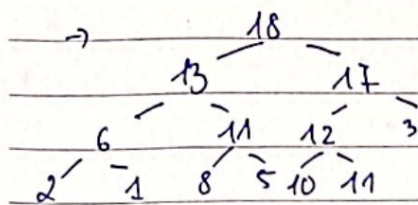 → 18
13 17
6 11 12 3
2 1 8 5 10 11